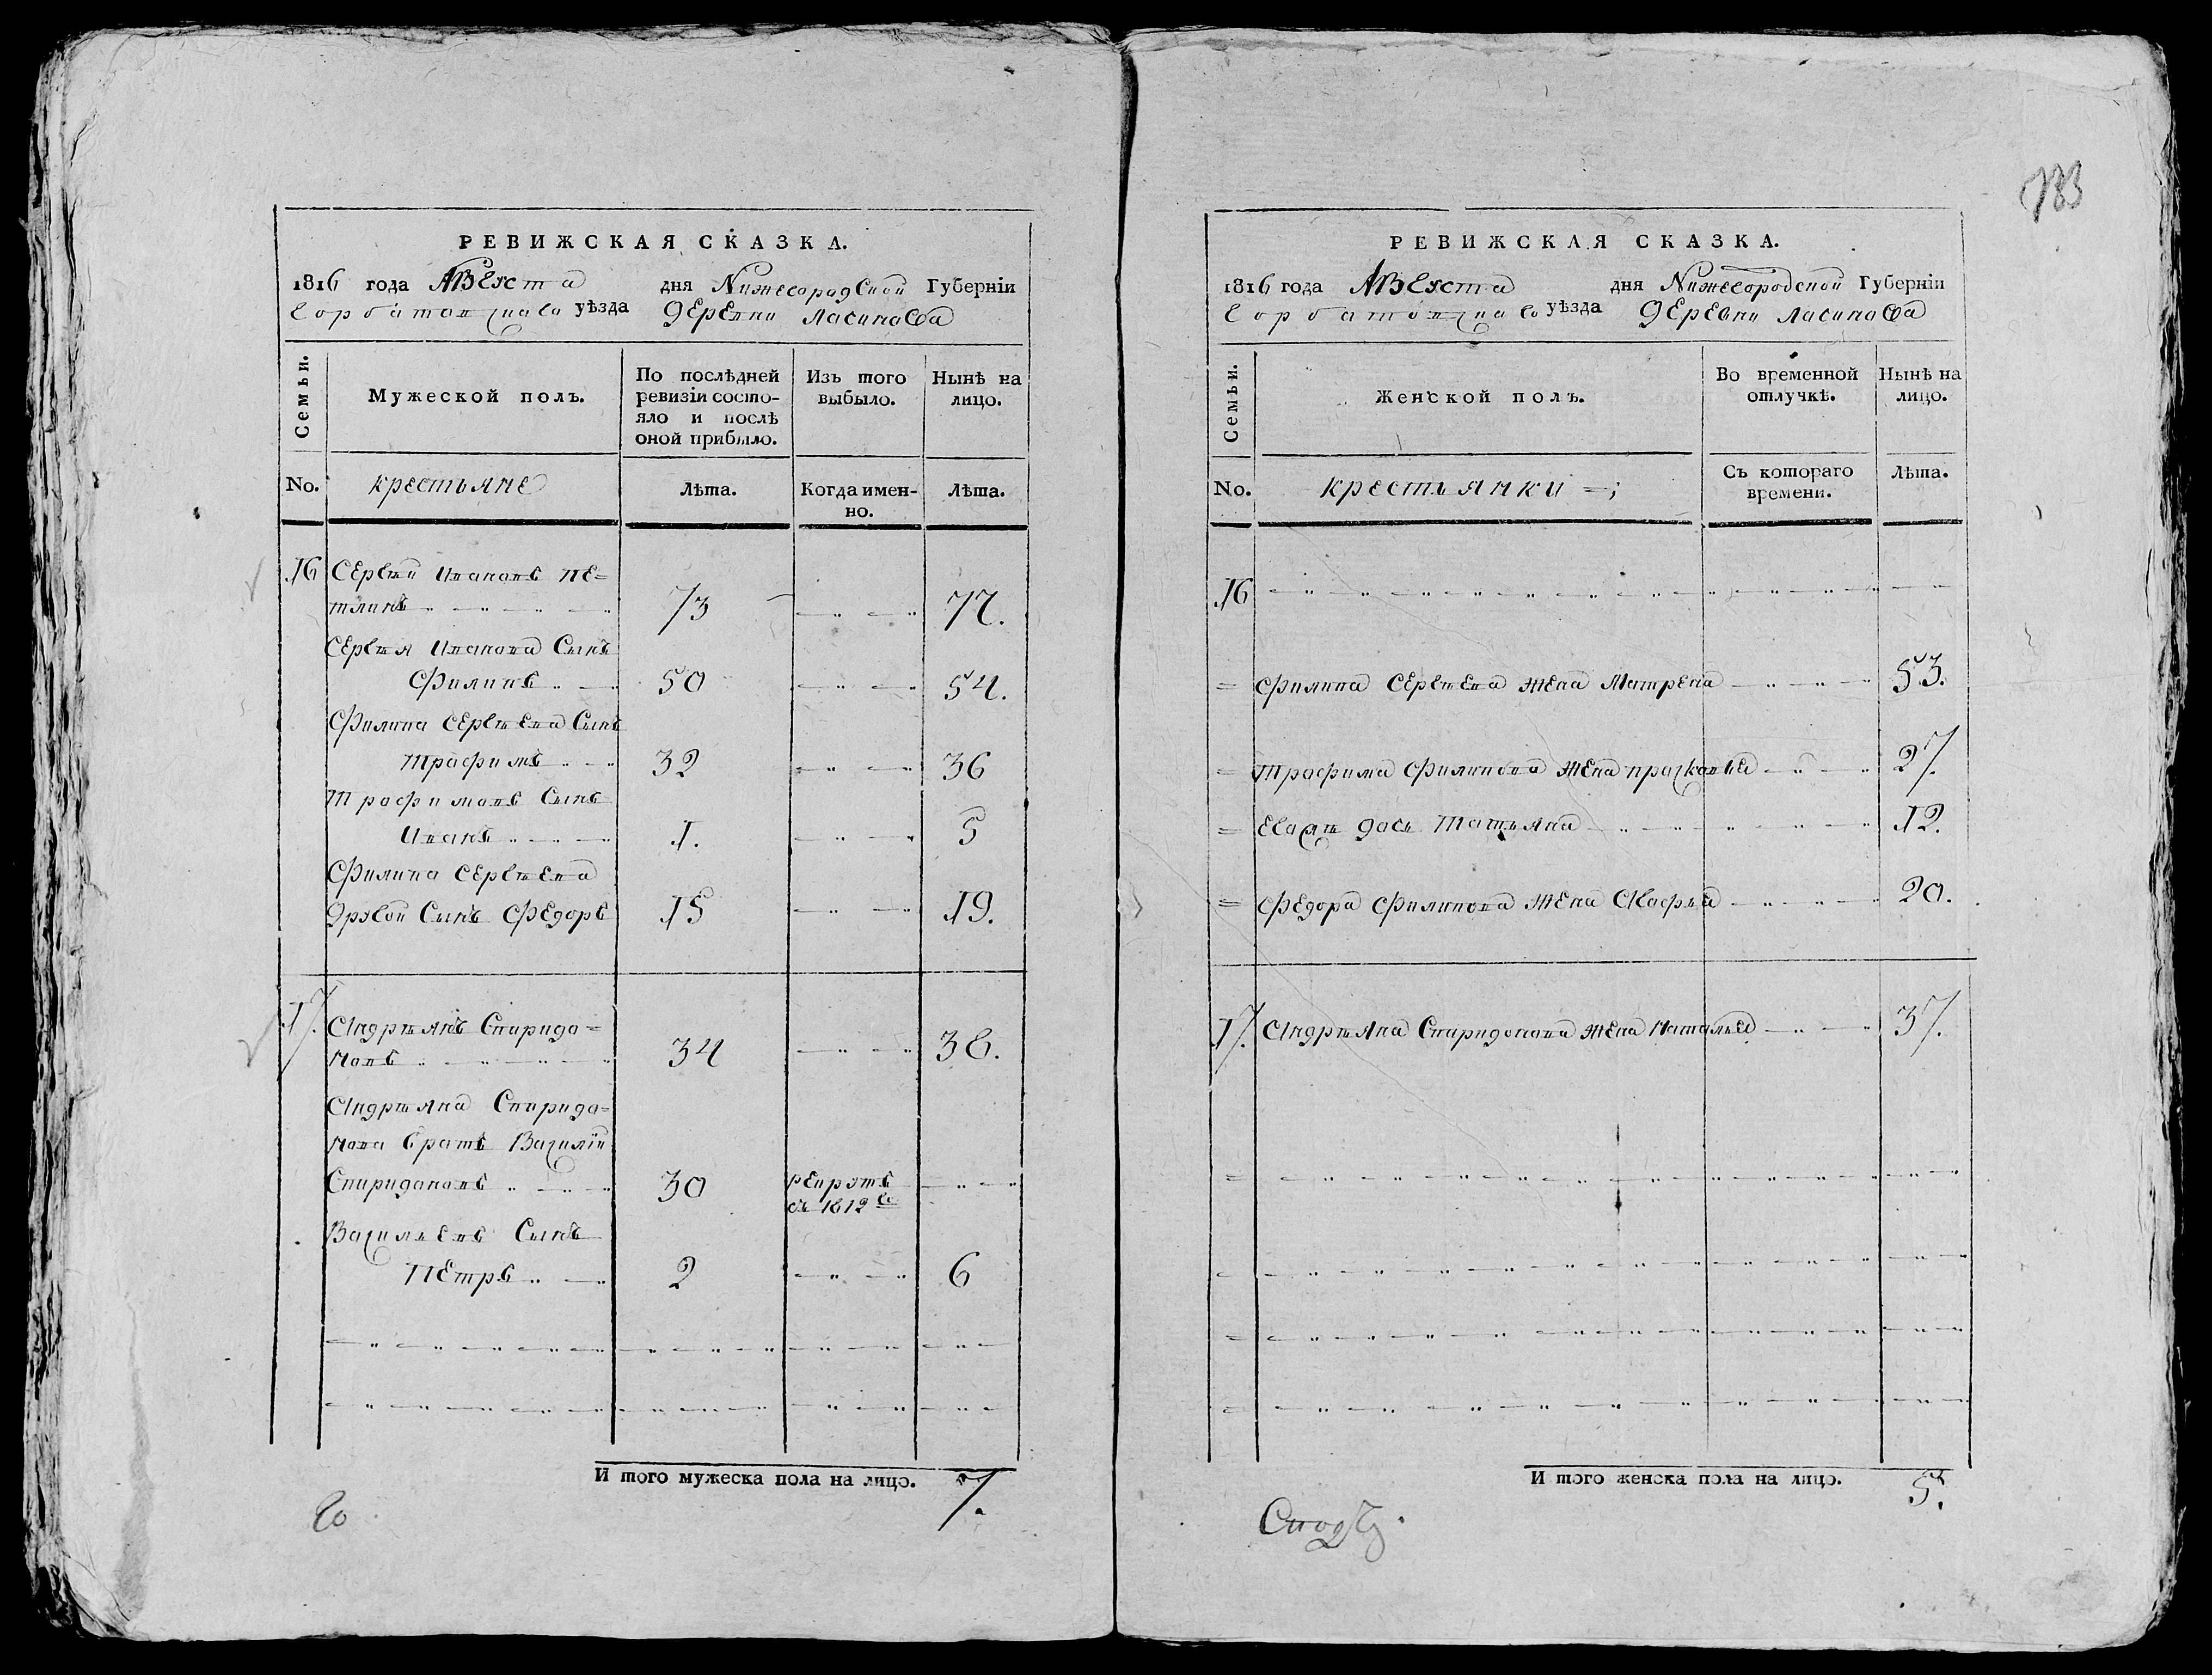 183
РЕВИЖСКАЯ СКАЗКА.
1816 года Августа дня Нижегородской Губерніи
Горбатовскаго уѣзда деревни
Семьи.
Мужеской полъ.
По послѣдней ревизіи состо-
яло и послѣ
оной прибыло.
Изъ того
выбыло.
Нынѣ на
лицо.
No.
крестьяне
Лѣта.
Когда имен-
но.
Лѣта.
16
Сергѣй Ивановъ Пе=
тлинъ
73
77.
Сергѣя Иванова Сынъ
Филипъ
50
54.
Филипа Сергѣева Сынъ
Трафимъ
32
36
Трафимовъ Сынъ
Иванъ
1.
5
Филипа Сергѣева
другой Сынъ Федоръ
15
19.
17.
Андрѣянъ Спиридо=
новъ
34
38.
Андрѣяна Спиридо=
нова братъ Василій
Спиридоновъ
30
рекрутъ
въ 1812 го
Васильевъ Сынъ
Петръ
2
6
И того мужеска пола на лицо. 7.
РЕВИЖСКАЯ СКАЗКА.
1816 года Августа дня Нижегородской Губерніи
Горбатовскаго уѣзда деревни
Семьи.
Женской полъ.
Во временной
отлучкѣ.
Нынѣ на
лицо.
No.
крестьянки
Съ котораго
времени.
Лѣта.
16
Филипа Сергѣева жена Матрена 53.
Трафима Филипова жена Прасковья 27.
дочь Татьяна 12.
Федора Филипова жена 20.
17. Андрѣяна Спиридонова жена Наталья 37.
И того женска пола на лицо. 5.